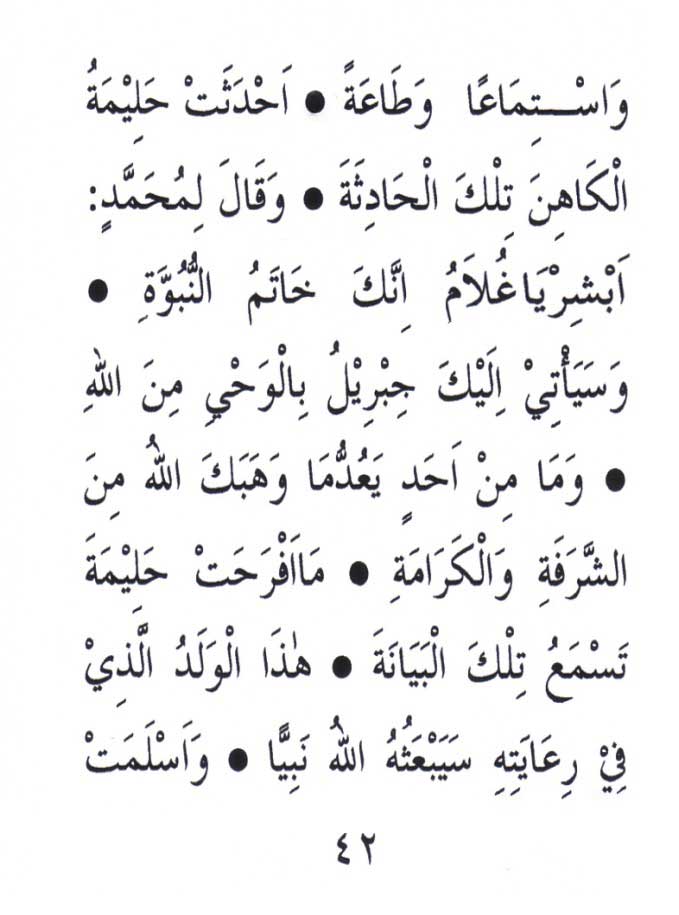 وَاسْتِمَاعًا وَطَاعَةً ● اَحْدَثَتْ حَلِيْمَةُ
الْكَاهِنَ تِلْكَ الْحَادِثَةَ ● وَقَالَ لِمُحَمَّدٍ:
اَبْشِرْيَاغُلَامُ اِنَّكَ خَاتَمُ النُّبُوَّةِ ●
وَسَيَأْتِيْ اِلَيْكَ جِبْرِيْلُ بِالْوَحْيِ مِنَ اللهِ
● وَمَا مِنْ اَحَدٍ يَعُدُّمَا وَهَبَكَ اللهُ مِنَ
الشَّرَفَةِ وَالْكَرَامَةِ ● مَااَفْرَحَتْ حَلِيْمَةَ
تَسْمَعُ تِلْكَ الْبَيَانَةَ ● هٰذَا الْوَلَدُ الَّذِيْ
فِيْ رِعَايَتِهِ سَيَبْعَثُهُ اللهُ نَبِيًّا ● وَاَسْلَمَتْ
٤٢